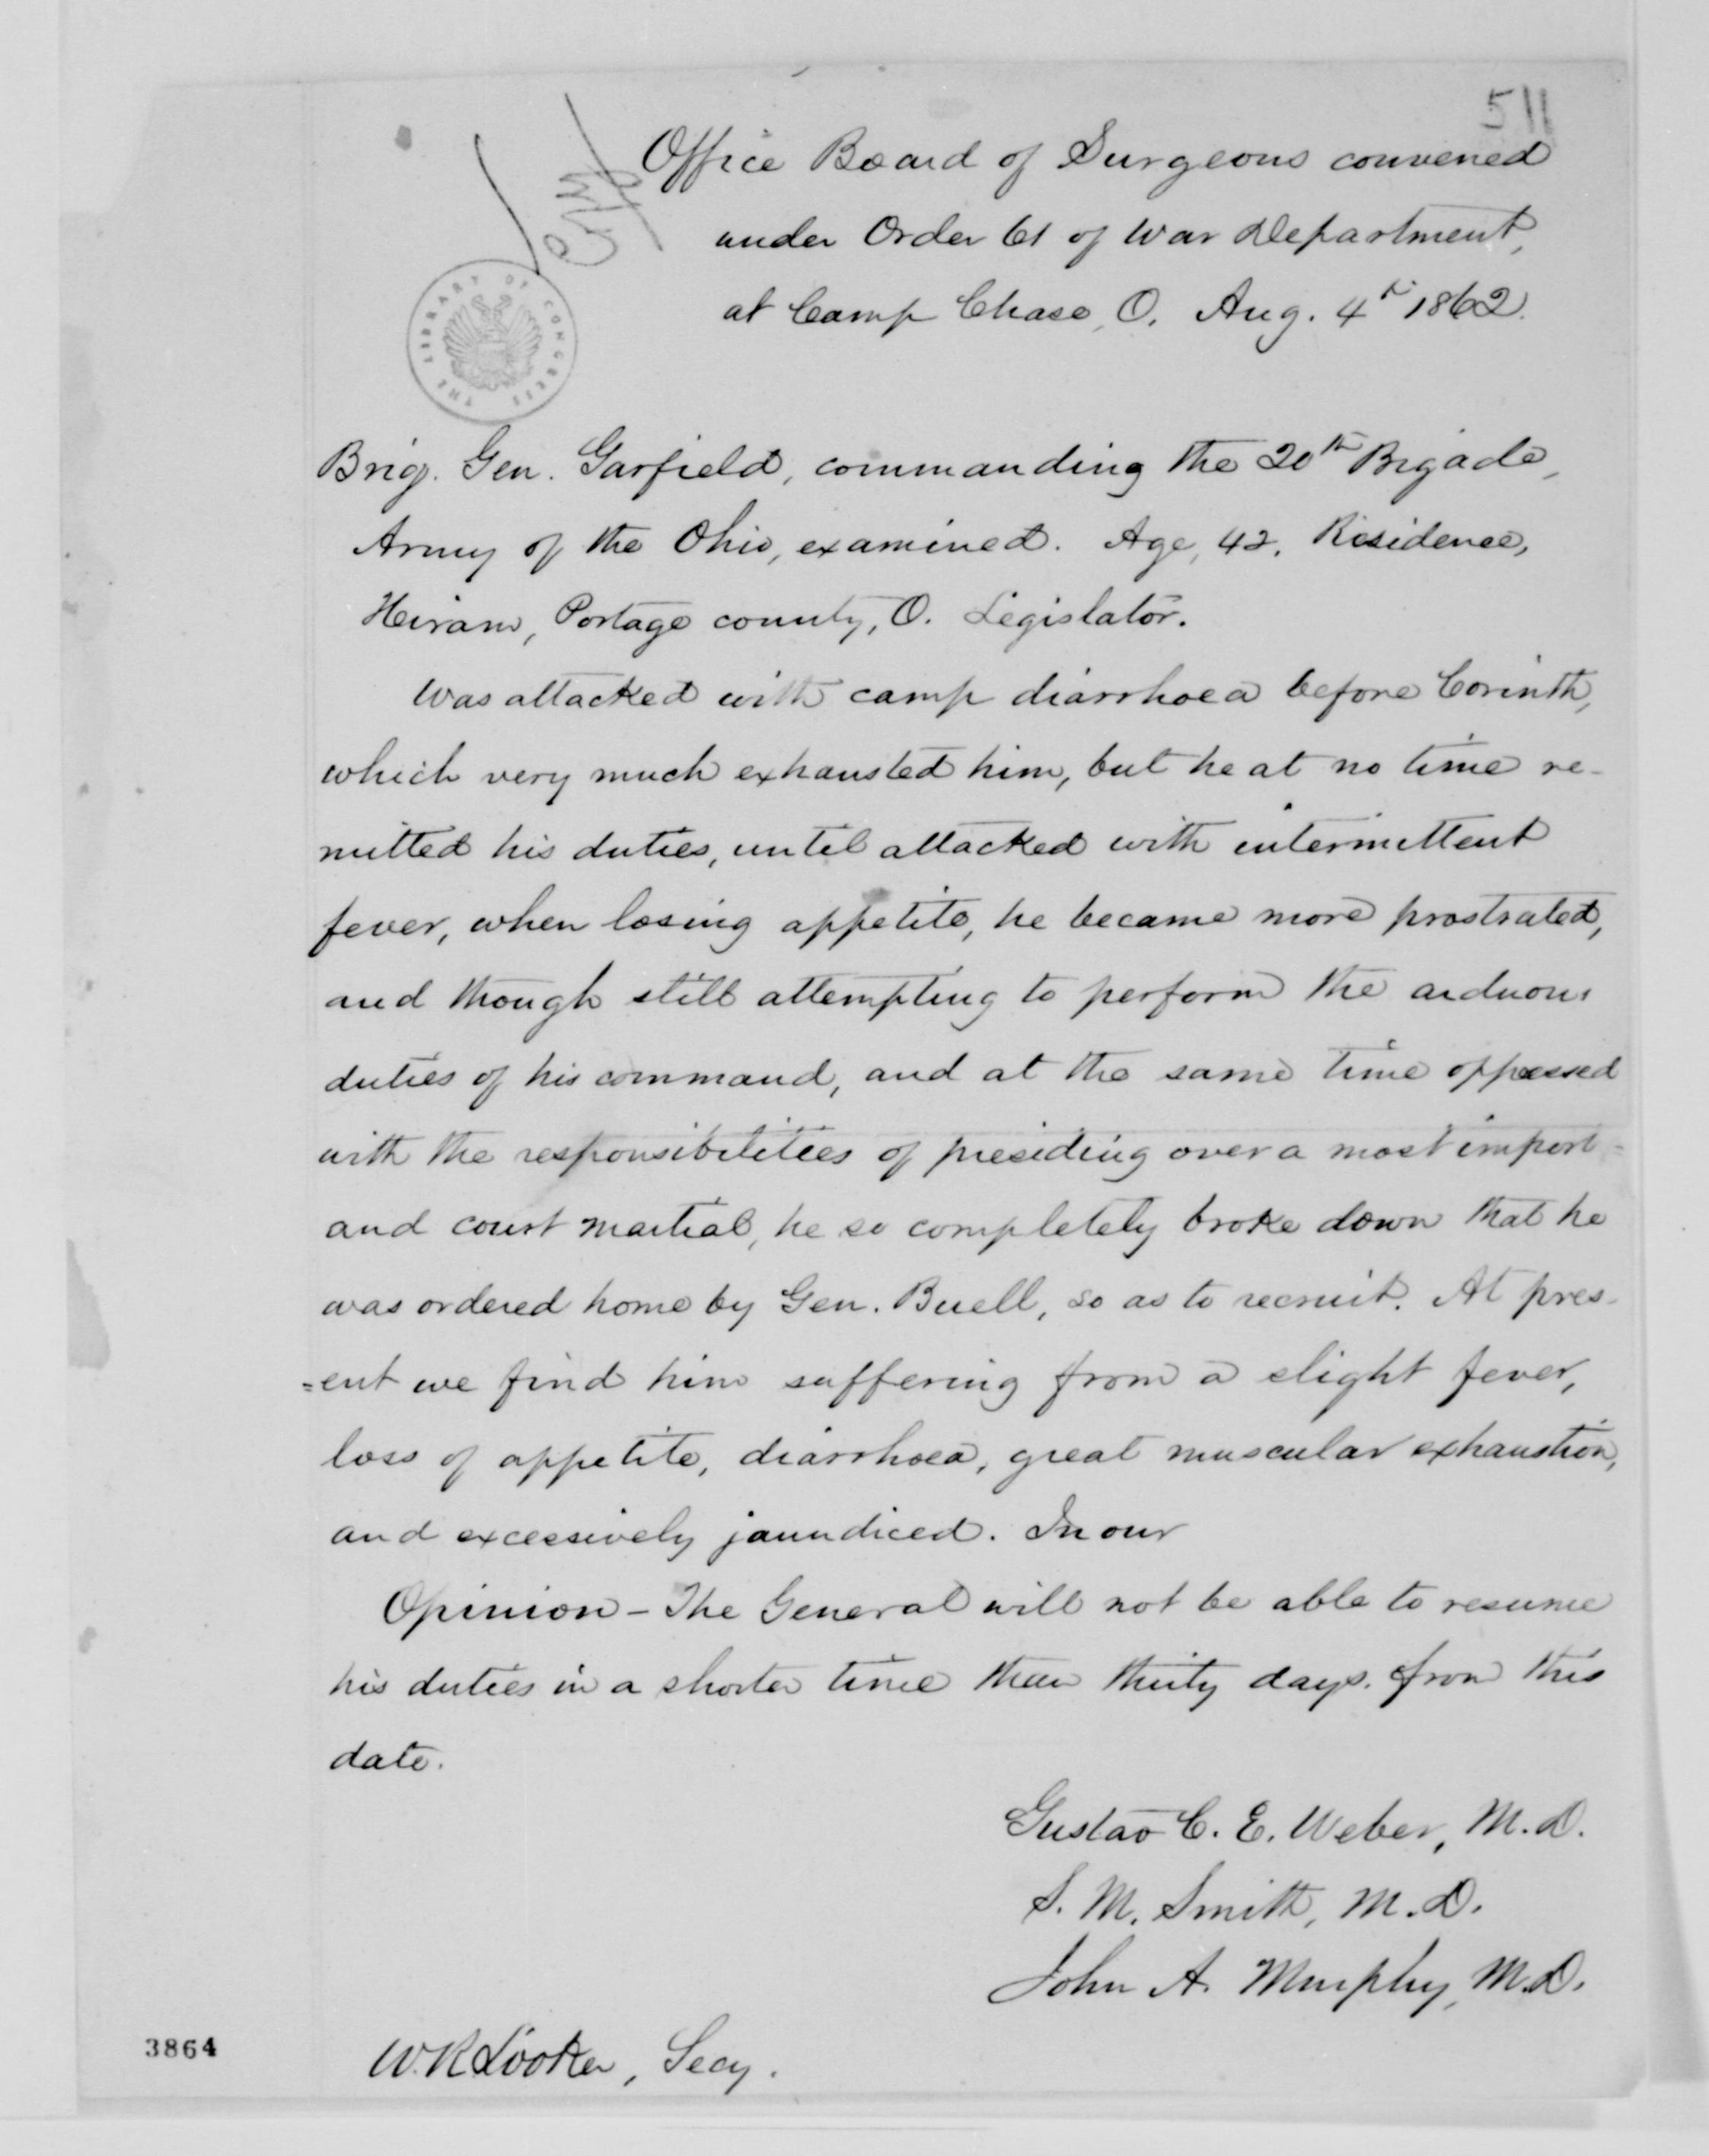 511
Office Board of Surgeons convened
under Order 61 of War Department,
at Camp Chase, O. Aug. 4th 1862.
THE LIBRARY OF CONGRESS
Brig. Gen. Garfield, commanding the 20th Brigade,
Army of the Ohio, examined. Age, 42. Residence,
Heiram, Portage county, O. Legislator.
Was attacked with camp diarrhoea before Corinth,
which very much exhausted him, but he at no time re-
mitted his duties, until attacked with intermittent
fever, when losing appetite, he became more prostrated,
and though still attempting to perform the arduous
duties of his command, and at the same time oppressed
with the responsibilities of presiding over a most import-
and court martial, he so completely broke down that he
was ordered home by Gen. Buell, so as to recruit. At pres-
=ent we find him suffering from a slight fever,
loss of appetite, diarrhoea, great muscular exhaustion,
and excessively jaundiced. In our
Opinion - The General will not be able to resume
his duties in a shorter time than thirty days. from this
date.
Gustav C. E. Weber, M.D.
S. M. Smith, M.D.
John A. Murphy, M.D.
3864
W. R. Looker, Secy.